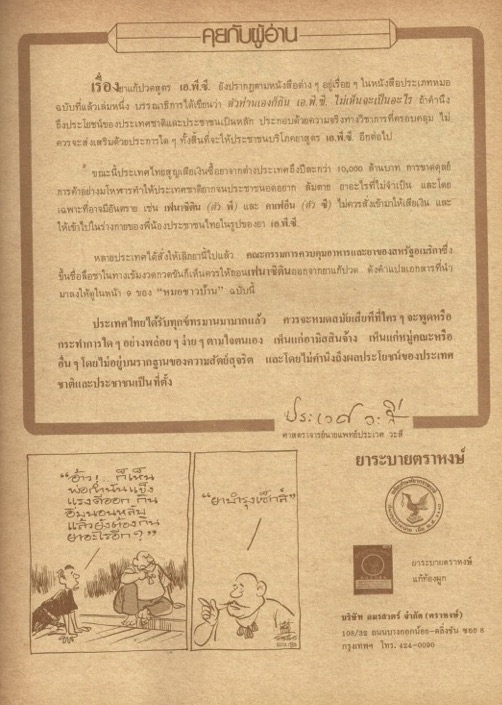 คุยกับผู้อ่าน
เรื่องยาแก้ปวดสูตร เอ.พี.ซี. ยังปรากฏตามหนังสือต่าง ๆ อยู่เรื่อย ๆ ในหนังสือประเภทหมอ
ฉบับที่แล้วเล่มหนึ่ง บรรณาธิการได้เขียนว่า ตัวท่านเองก็กิน เอ.พี.ซี. ไม่เห็นจะเป็นอะไร ถ้าคำนึง
ถึงประโยชน์ของประเทศชาติและประชาชนเป็นหลัก ประกอบด้วยความจริงทางวิชาการที่ครอบคลุม ไม่
ควรจะส่งเสริมด้วยประการใด ๆ ทั้งสิ้นที่จะให้ประชาชนบริโภคยาสูตร เอ.พี.ซี. อีกต่อไป
ขณะนี้ประเทศไทยสูญเสียเงินซื้อยาจากต่างประเทศถึงปีละกว่า 10,000 ล้านบาท การขาดดุลย์
การค้าอย่างมโหฬารทำให้ประเทศชาติยากจนประชาชนอดอยาก ล้มตาย ยาอะไรที่ไม่จำเป็น และโดย
เฉพาะที่อาจมีอันตราย เช่น เฟนาซิติน (ตัว พี) และ คาเฟอีน (ตัว ซี) ไม่ควรสั่งเข้ามาให้เสียเงิน และ
ให้เข้าไปในร่างกายของพี่น้องประชาชนไทยในรูปของยา เอ.พี.ซี.
หลายประเทศได้สั่งให้เลิกยานี้ไปแล้ว คณะกรรมการควบคุมอาหารและยาของสหรัฐอเมริกาซึ่ง
ขึ้นชื่อลือชาในทางเข้มงวดกวดขันก็เห็นควรให้ถอนเฟนาซิตินออกจากยาแก้ปวด ดังคำแปลเอกสารที่นำ
มาลงให้ดูในหน้า 9 ของ “หมอชาวบ้าน” ฉบับนี้
ประเทศไทยได้รับทุกข์ทรมานมามากแล้ว ควรจะหมดสมัยเสียทีที่ใคร ๆ จะพูดหรือ
กระทำการใด ๆ อย่างพล่อย ๆ ง่าย ๆ ตามใจตนเอง เห็นแก่อามิสสินจ้าง เห็นแก่หมู่คณะหรือ
อื่น ๆ โดยไม่อยู่บนรากฐานของความสัตย์สุจริต และโดยไม่คำนึงถึงผลประโยชน์ของประเทศ
ชาติและประชาชนเป็นที่ตั้ง
ประเวศ วะสี
ศาสตราจารย์นายแพทย์ประเวศ วะสี
“อ้าว! ก็เห็น
พ่อกำนันแข็ง
แรงดีออก กิน
อิ่มนอนหลับ
แล้วยังต้องกิน
ยาอะไรอีก?”
“ยาบำรุงเซ็กส์”
ยาระบายตราหงษ์
ยาระบายตราหงษ์
แก้ท้องผูก
บริษัท อมรสาตร์ จำกัด (ตราหงษ์)
108/32 ถนนบางกอกน้อย-ตลิ่งชัน ซอย 8
กรุงเทพฯ โทร. 424-0090